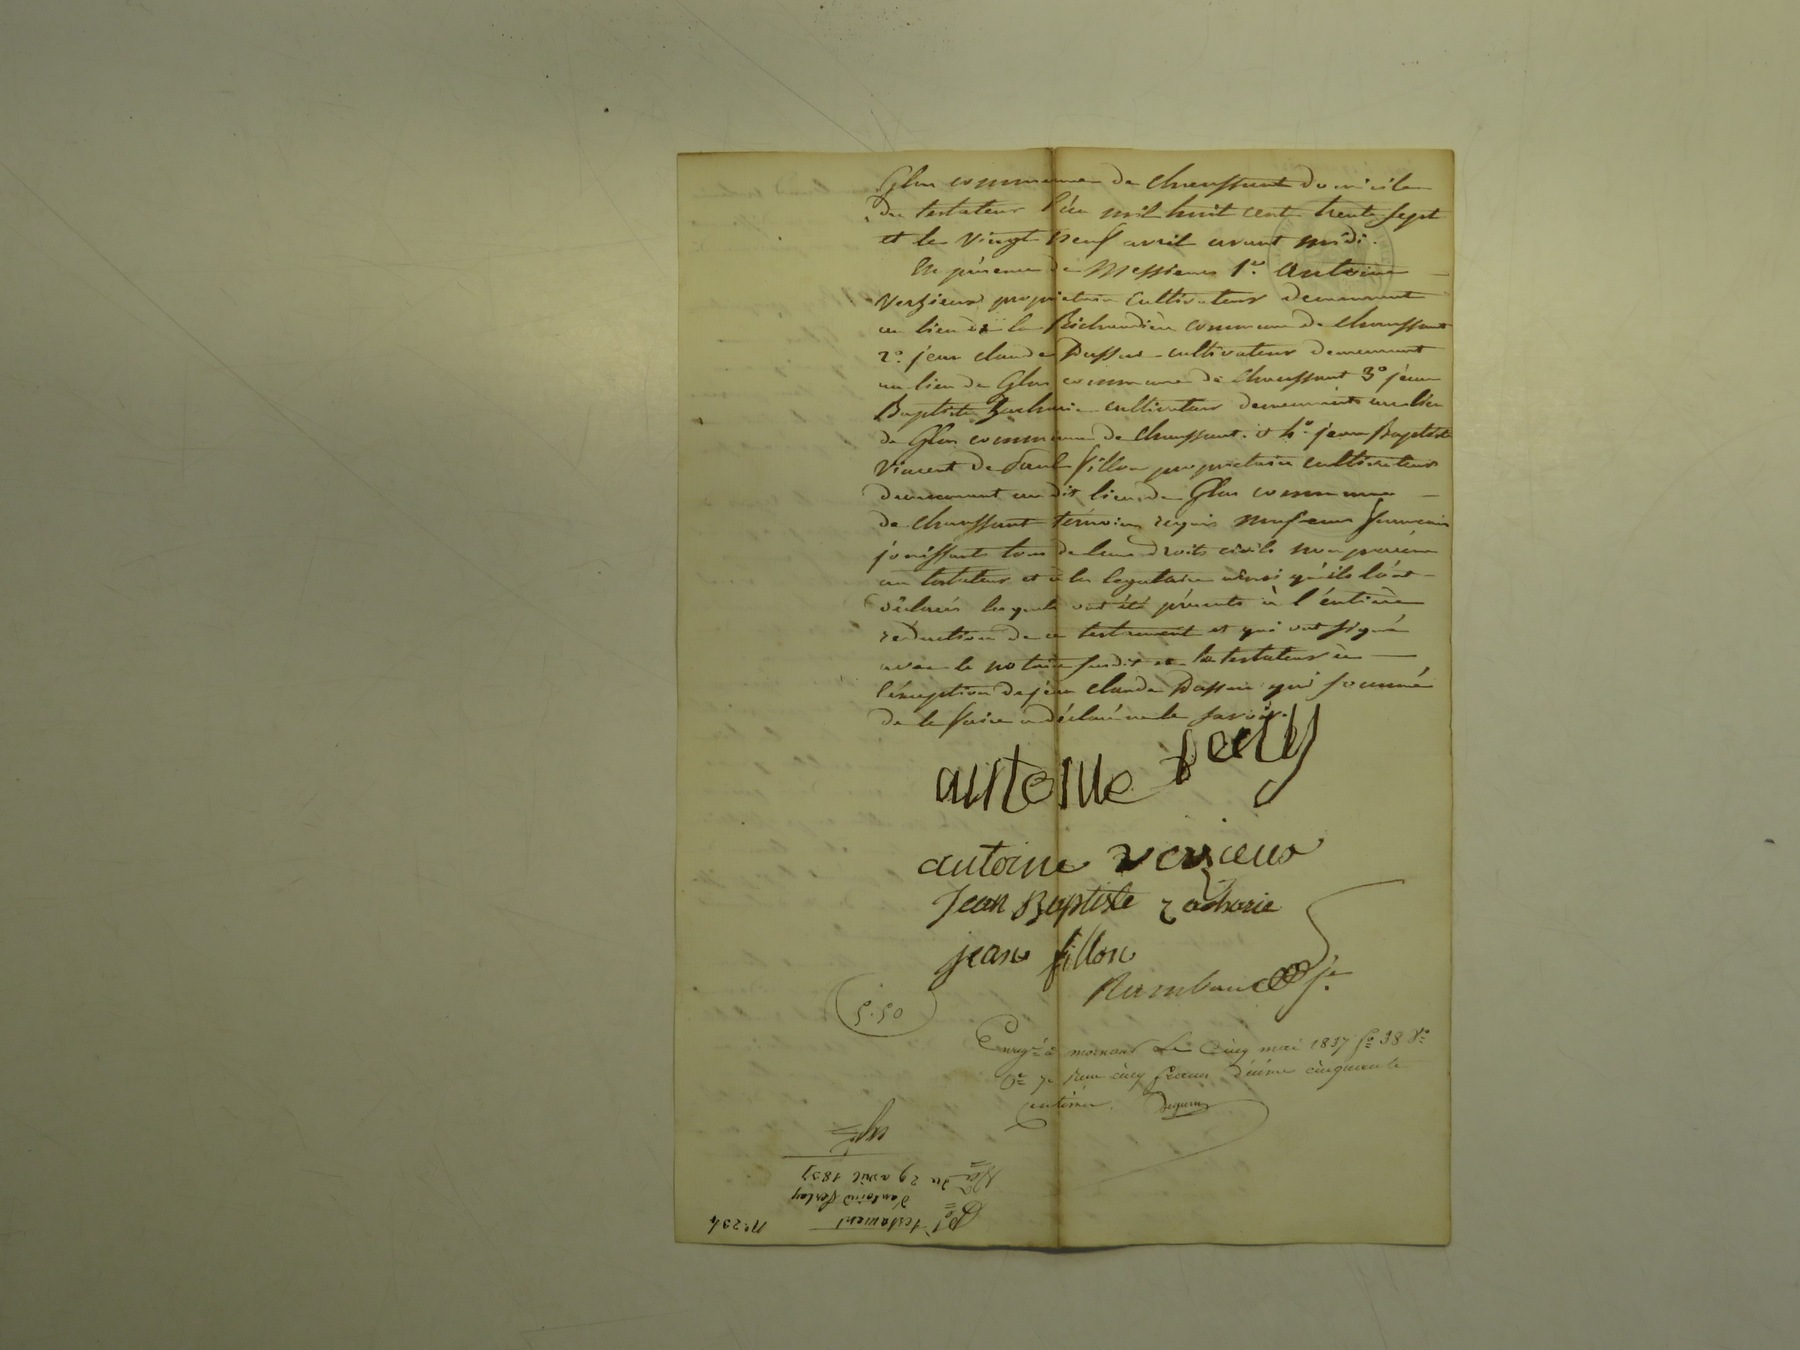 Glas commune de chaussant domicile
du testateur l'an mil huit cent trente sept
et le vingt neuf avril avant midi.
En présence de Messieurs 1.° Antoine
Verzieux propriétaire cultivateur demeurant
au lieu de la Richaudière commune de chaussant
2.° jean claude cultivateur demeurant
au lieu de Glas commune de chaussant 3° jean
Baptiste Zacharie cultivateur demeurants au lieu
de Glas commune de chaussant. et 4.° jean Baptiste
Vincent de Paul fillon propriétaire cultivateur
demeurant au dit lieu de Glas commune
de chaussant témoins requis majeurs francais
jouissants tous de leurs droits civils non parens
au testateur et à la légataire ainsi qu'ils l'ont
déclarés lesquels ont été présents à l'entière
rédaction de ce testament et qui ont signé
avec le notaire susdit et le testateur à
l'éxception de jean claude qui sommé
de le faire a déclaré ne le savoir.
antoine ferly
antoine verzieux
Jean Baptiste zacharie
jean fillon
Rambaud je.
5.50
Enregé à mornant Le Cinq mai 1837 f° 38 V°
Ce 7e Reçu cinq francs décime cinquante
centimes.
N° 234
testament
d'antoine ferlay
du 29 avril 1837